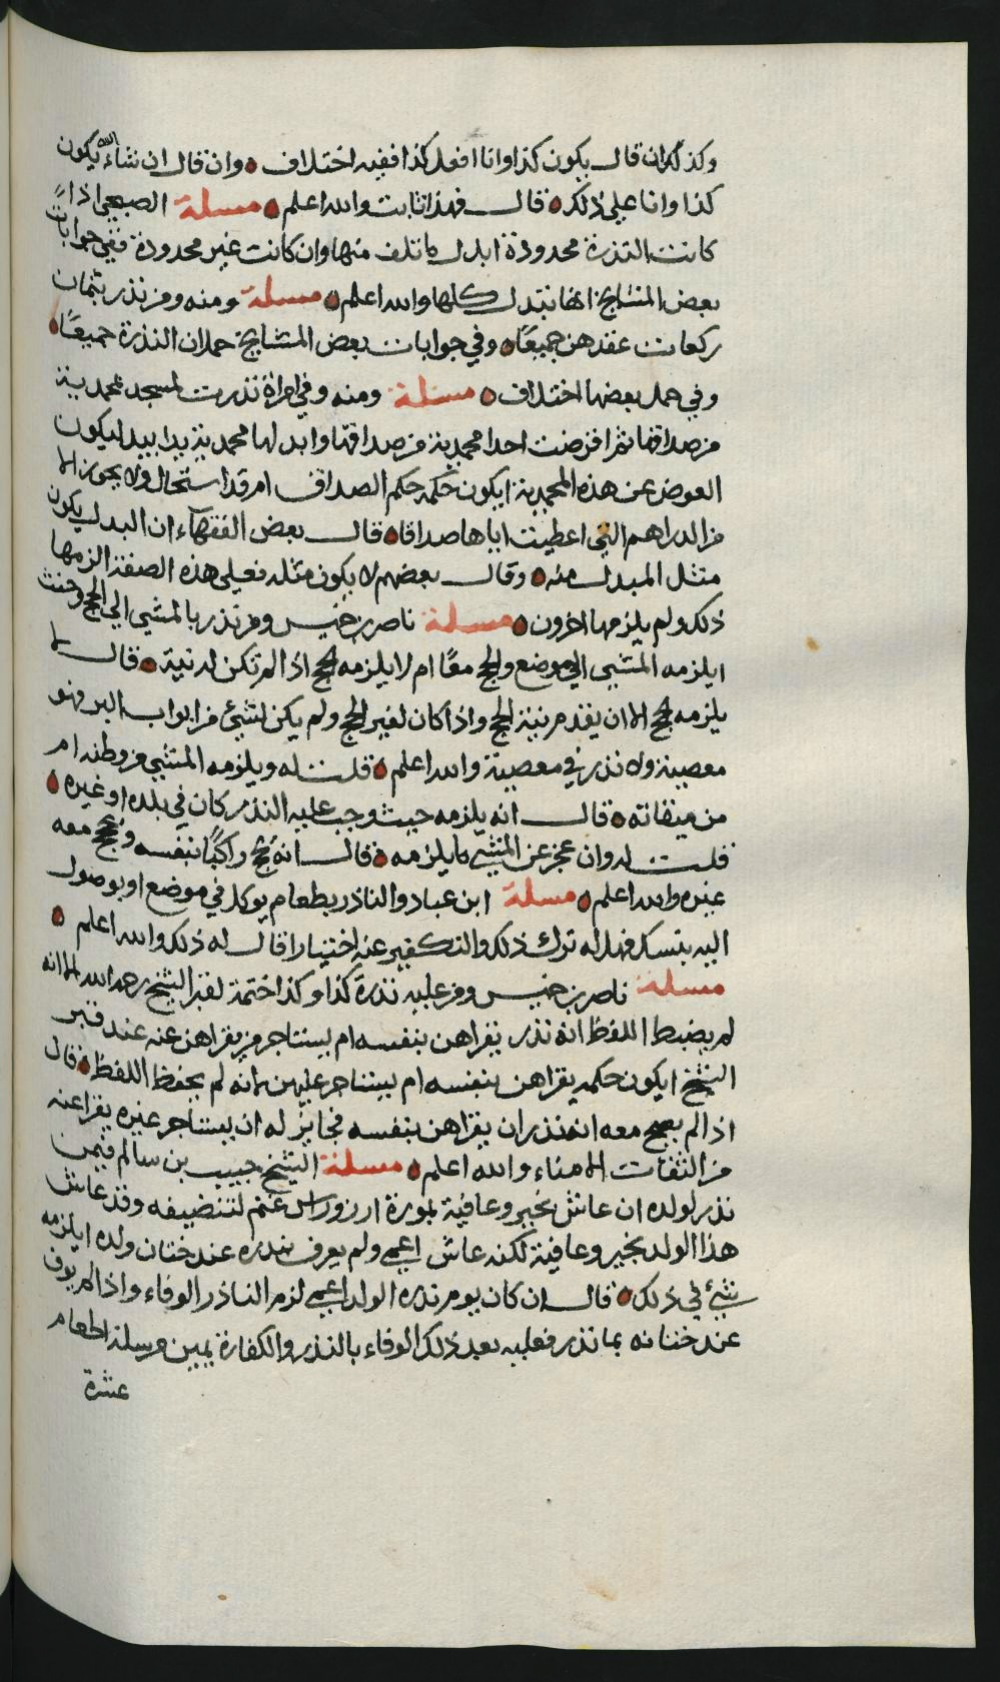 وكذلك ان قال يكون كذا وانا افعل كذا ففيه اختلاف وان قال ان شاء الله يكون
كذا وانا علي ذلك قال فهذا ثابت والله اعلم مسلة الصبحي اذا
كانت النذرة محدودة ابدل ما تلف منها وان كانت غير محدودة ففي جوابات
بعض المشايخ انها تبدل كلها والله اعلم مسلة ومنه ومن نذر بثمان
ركعات عقدهن جميعًا وفي جوابات بعض المشايخ حملان النذرة جميعًا
وفي حمل بعضها اختلاف مسلة ومنه وفي امراة نذرت لمسجد بمحمدية
من صداقها ثم اقرضت احدا محمدية من صداقها وابدلها محمدية يدا بيد ليكون
العوض عن هذه المحمدية ايكون حكمه حكم الصداق ام قد استحال ولا يجوز الا
من الدراهم التي اعطيت اياها صداقا قال بعض الفقهاء ان البدل يكون
مثل المبدل منه وقال بعضهم لا يكون مثله فعلي هذه الصفة الزمها
ذلك ولم يلزمها اخرون مسلة ناصر بن خميس ومن نذر بالمشي الي الحج وحنث
ايلزمه المشي الي موضع والحج معًا ام لا يلزمه الحج اذا لم تكن له نية قال لا
يلزمه الحج الا ان يقدم نية الحج واذا كان لغير الحج ولم يكن لشيء من ابواب البر فهو
معصية ولا نذر في معصية والله اعلم قلت له ويلزمه المشي من وطنه ام
من ميقاته قال انه يلزمه حيث وجب عليه النذر كان في بلده او غيره
قلت له وان عجز عن المشي ما يلزمه قال انه يحج راكبًا بنفسه ويحج معه
غيره والله اعلم مسلة ابن عباد والناذر بطعام يوكل في موضع او بوصول
اليه بنسك فهل له ترك ذلك والتكفير عنه اختيارا قال له ذلك والله اعلم
مسلة ناصر بن خميس ومن عليه نذرة كذا وكذا ختمة لقبر الشيخ رحمه الله الا انه
لم يضبط اللفظ انه نذر يقراهن بنفسه ام يستاجر من يقراهن عنه عند قبر
الشيخ ايكون حكمه يقراهن بنفسه ام يستاجر عليهن لانه لم يحفظ اللفظ قال
اذا لم يصح معه انه نذر ان يقراهن بنفسه فجايز له ان يستاجر غيره يقرا عنه
من الثقات الامناء والله اعلم مسلة الشيخ حبيب بن سالم فيمن
نذر لولده ان عاش بخير وعافية بمورة ارز وراس غنم لتنضيفه وقد عاش
هذا الولد بخير وعافية لكنه عاش اعمي ولم يعرف نذره عند ختان ولده ايلزمه
شيء في ذلك قال ان كان يوم نذره الولد اعمي لزم الناذر الوفاء واذا لم يوف
عند ختانه بما نذر فعليه بعد ذلك الوفاء بالنذر والكفارة يمين مرسلة اطعام
عشرة